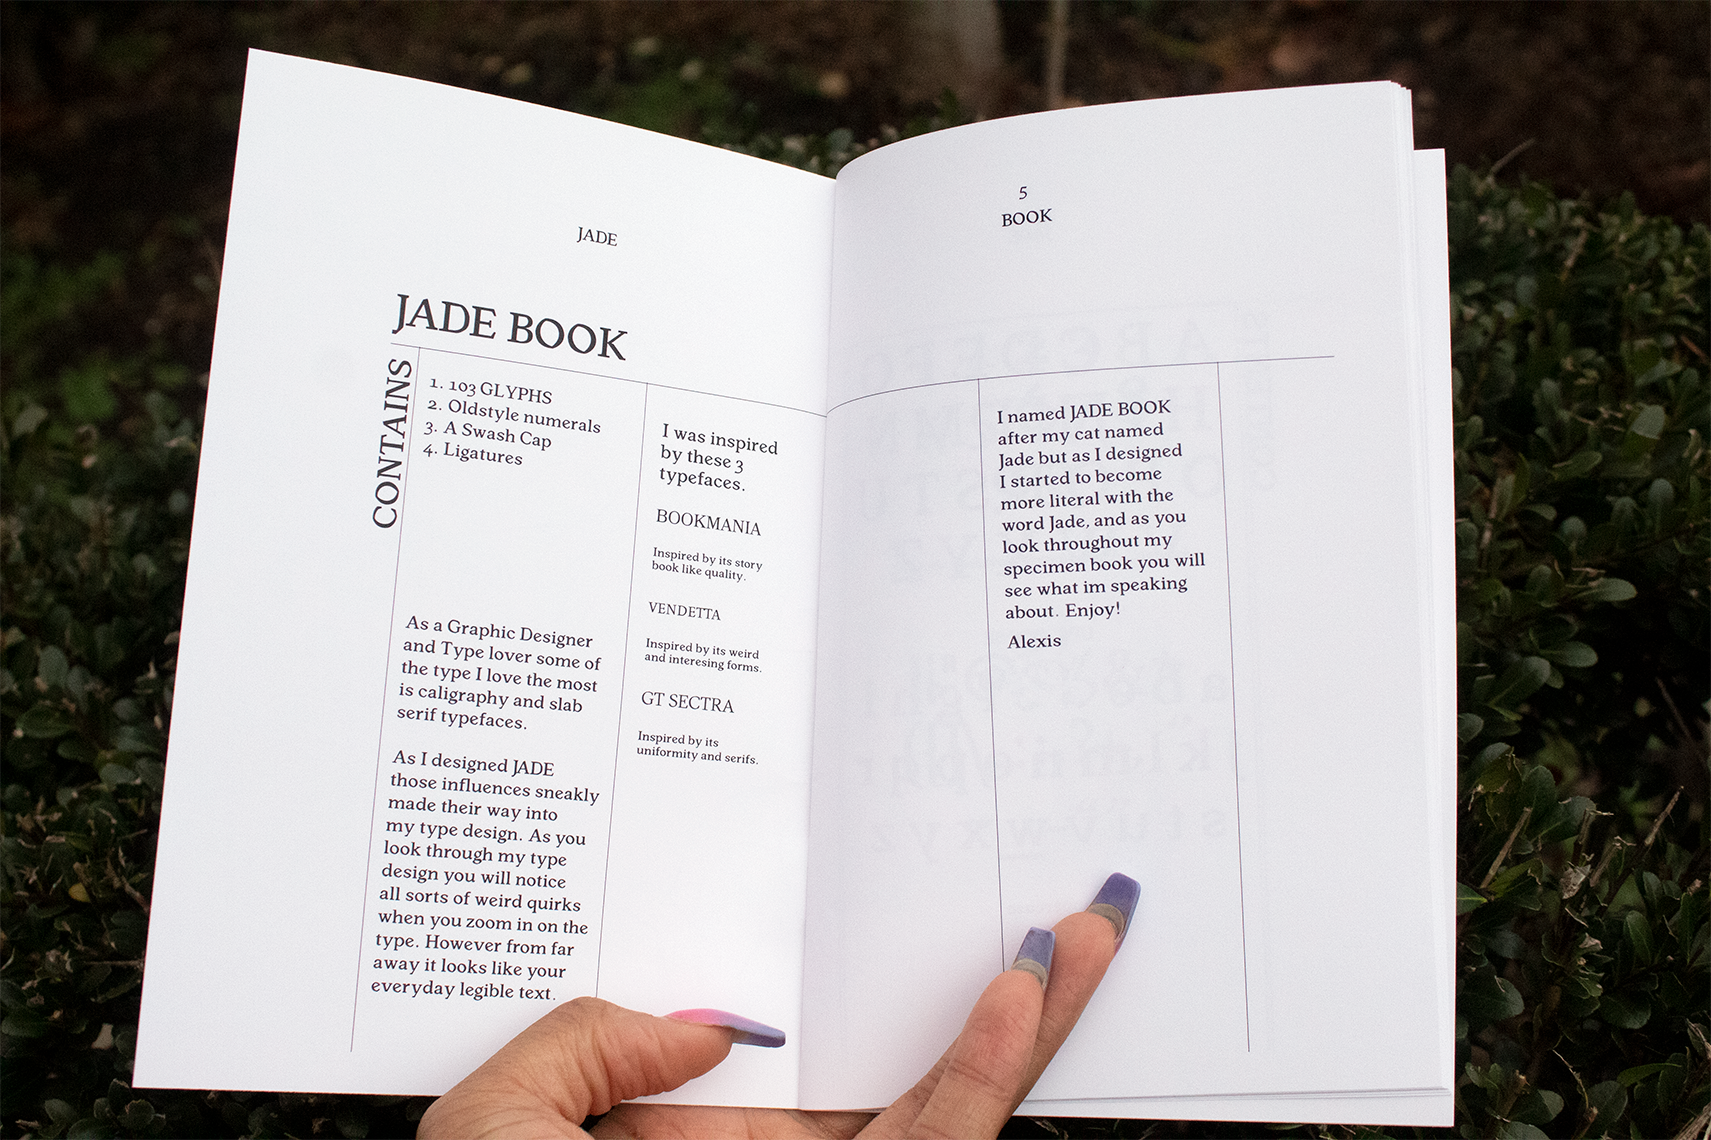 JADE
JADE BOOK
CONTAINS
1. 103 GLYPHS
2. Oldstyle numerals
3. A Swash Cap
4. Ligatures
As a Graphic Designer
and Type lover some of
the type I love the most
is caligraphy and slab
serif typefaces.
As I designed JADE
those influences sneakly
made their way into
my type design. As you
look through my type
design you will notice
all sorts of weird quirks
when you zoom in on the
type. However from far
away it looks like your
everyday legible text.
I was inspired
by these 3
typefaces.
BOOKMANIA
Inspired by its story
book like quality.
VENDETTA
Inspired by its weird
and interesing forms.
GT SECTRA
Inspired by its
uniformity and serifs.
5
BOOK
I named JADE BOOK
after my cat named
Jade but as I designed
I started to become
more literal with the
word Jade, and as you
look throughout my
specimen book you will
see what im speaking
about. Enjoy!
Alexis